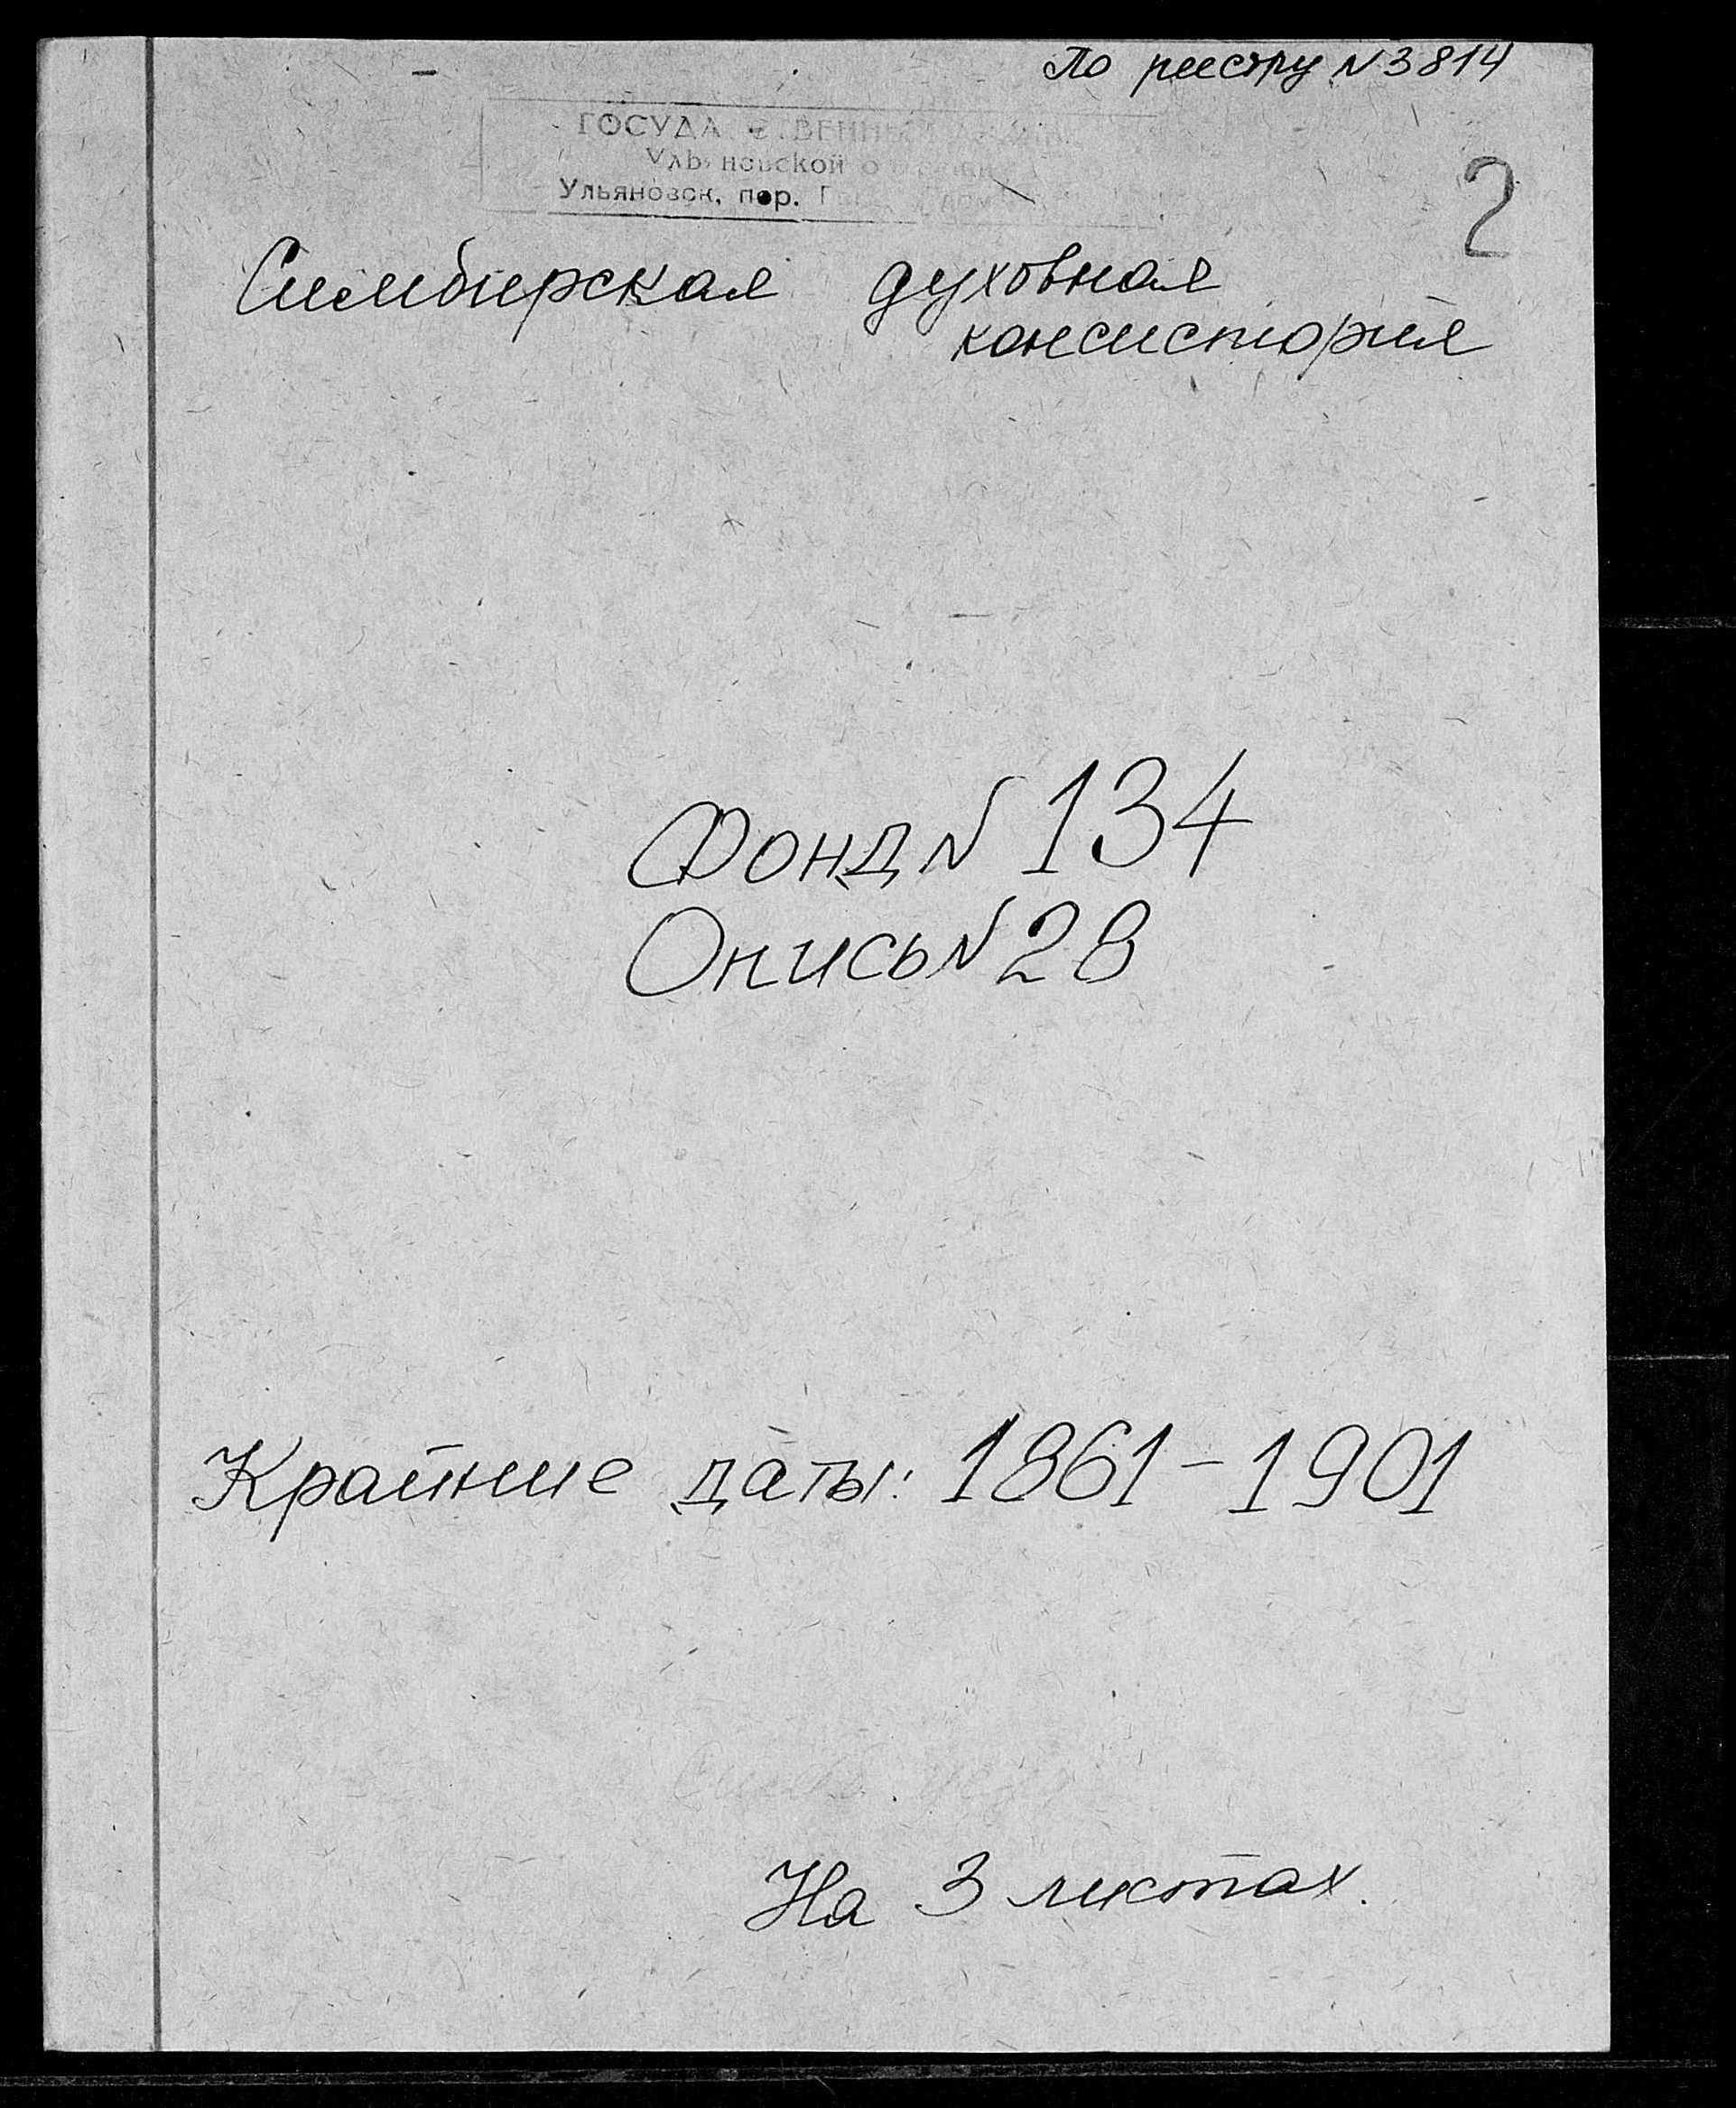 По реестру N 3814
Ульяновск, пер.
2
Симбирская духовная
консистория
Фонд N 134
Опись N 28
Крайние даты: 1861-1901
На 3 листах.